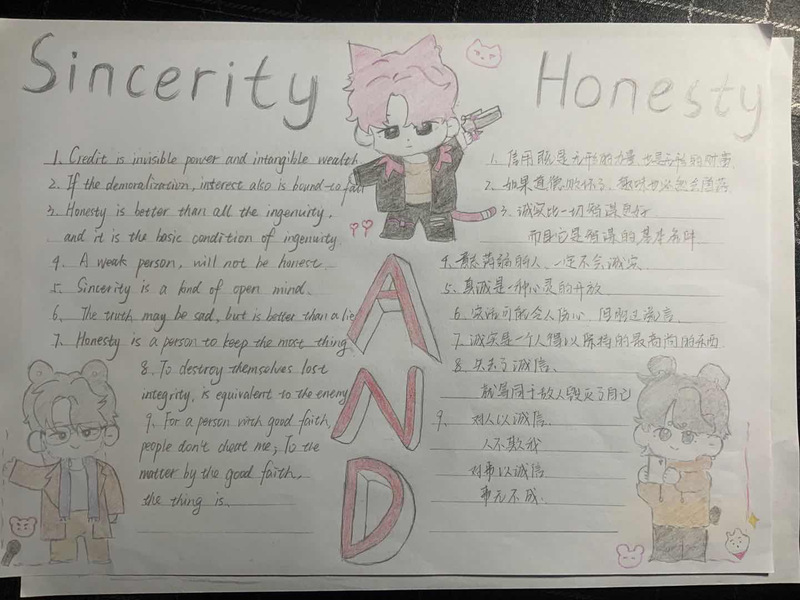 Sincerity
Honesty
AND
1. Credit is invisible power and intangible wealth
2. If the demoralization, interest also is bound to fall
3. Honesty is better than all the ingenuity,
and it is the basic condition of ingenuity
4. A weak person, will not be honest.
5. Sincerity is a kind of open mind.
6. The truth may be sad, but is better than a lie
7. Honesty is a person to keep the most thing
8. To destroy themselves lost
integrity, is equivalent to the enemy
9. For a person with good faith,
people don't cheat me; To the
matter by the good faith,
the thing is.
1. 信用既是无形的力量 也是无形的财富
2. 如果道德败坏了 趣味也必然会堕落
3. 诚实比一切智谋更好
而且它是智谋的基本条件
4. 意志薄弱的人、一定不会诚实
5. 真诚是一种心灵的开放
6. 实话可能令人伤心、但胜过谎言
7. 诚实是一个人得以保持的最高尚的东西
8. 失去了诚信、
就等同于敌人毁灭了自己
9. 对人以诚信
人不欺我
对事以诚信
事无不成.